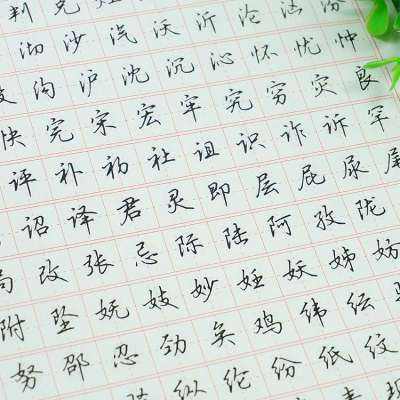 判 兑
沏 沙 汽 沃 沂 沦 汹 汾
沟 沪 沈 沉 沁 怀 忧 忡
快 完 宋 宏 牢 究 穷 灾 良
评 补 初 社 诅 识 诈 诉 罕
诏 译 君 灵 即 层 屁 尿 尾
局 改 张 忌 际 陆 阿 孜 陇
附 坠 妩 妓 妙 妊 妖 姊 妨
努 邵 忍 劲 矣 鸡 纬 纭
纵 纶 纷 纸 纹